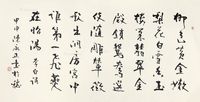 柳色黄金嫩
梨花白雪香玉
樓巢翡翠金
殿鎖鴛鴦選
妓隨雕輦徵
歌出洞房宮中
誰第一飛燕
在昭陽 李白詩